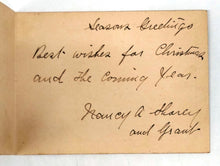 Seasons Greetings
Best wishes for Christmas
and the Coming Year.
Nancy A
and Grant